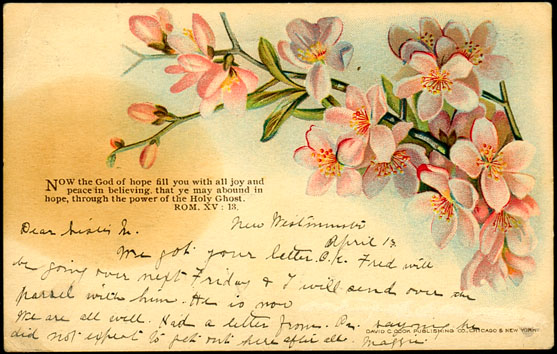 NOW the God of hope fill you with all joy and
peace in believing, that ye may abound in
hope, through the power of the Holy Ghost.
ROM. XV : 13.
New Westminster
April 13
Dear Sister M.
We got your letter O.K. Fred will
be going over next Friday & I will send over the
parcel with him. He is now
We are all well. Had a letter from Pa. saying he
did not expect to get out here after all. Maggie
DAVID C. COOK PUBLISHING CO., CHICAGO & NEW YORK